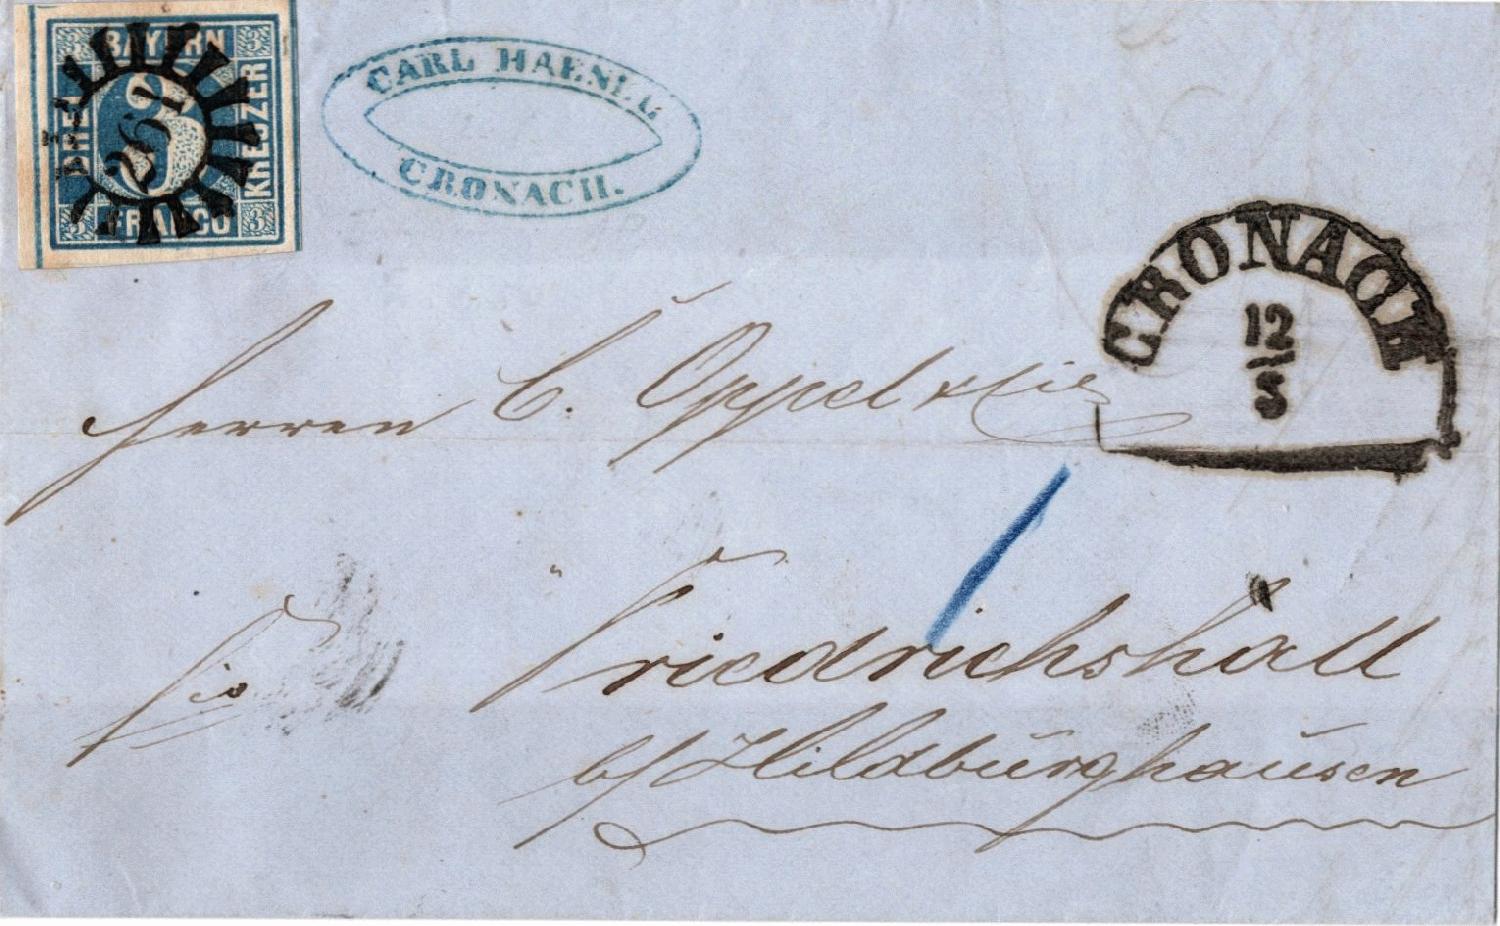 BAYERN
DREI
3
KREUZER
FRANCO
261
CARL HAENEL
CRONACH.
CRONACH
12
Herren C. Oppel & Cie
Friedrichshall
b/ Hildburghausen